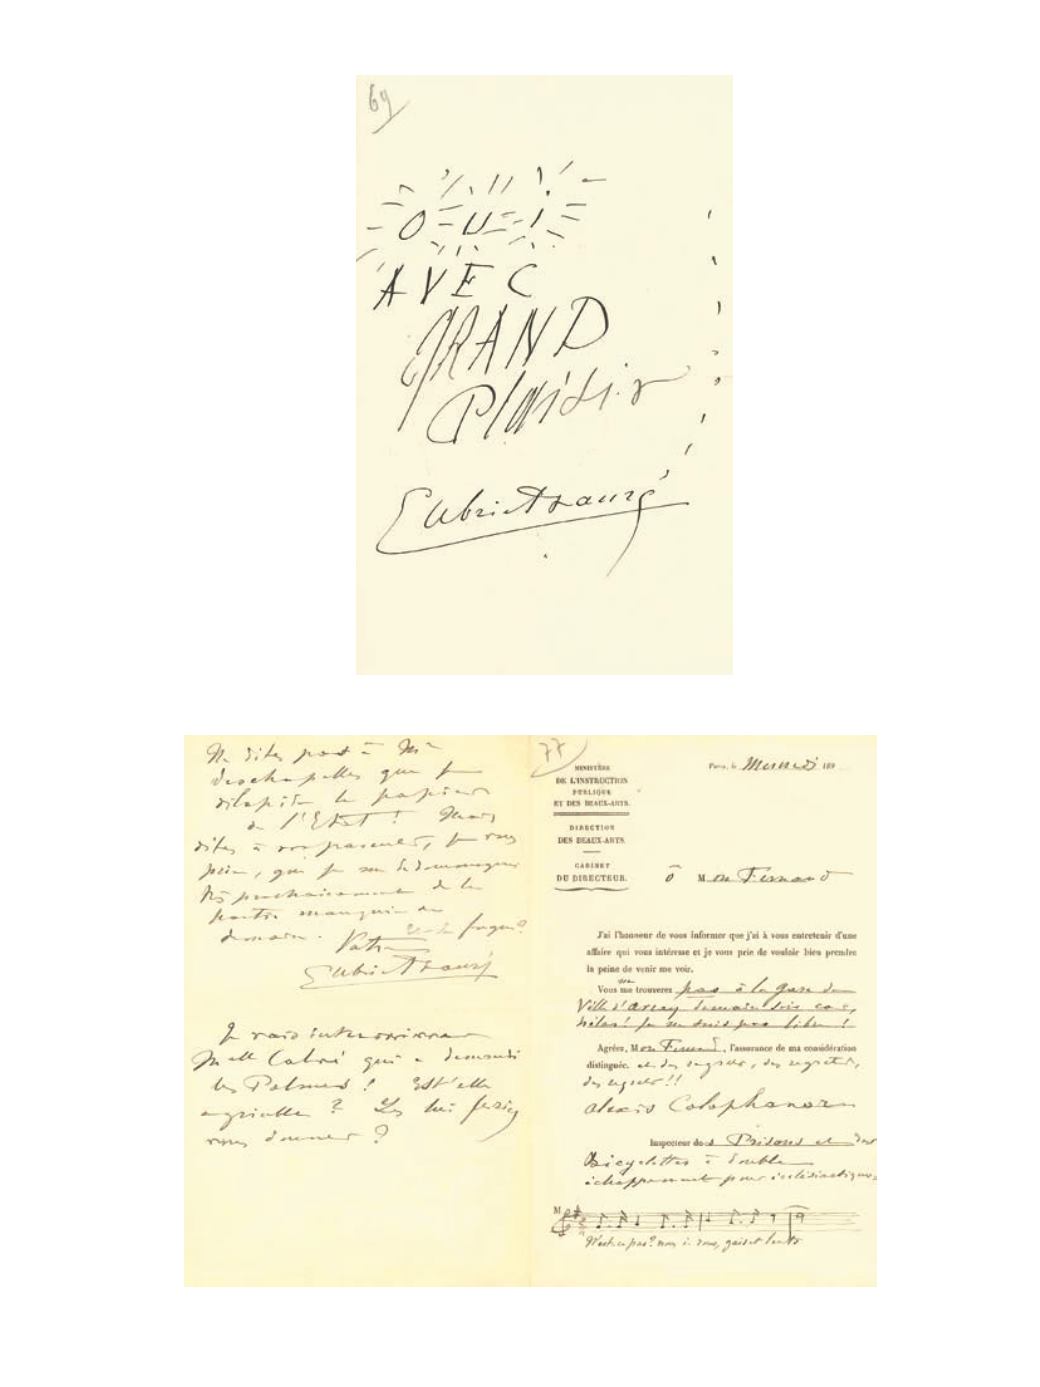 69
OUI
AVEC
GRAND
Plaisir
Gabriel Fauré
Ne dites pas à Mr
deschapelles que je
dilapide le papier
de l'Etat ! Mais
dites à vos parents, je vous
prie, que je me dédommagerai
très prochainement de la
partie manquée de
demain.
Votre
Gabriel Fauré
Je vais interviewer
Melle Cabré qui a demandé
les Palmes ! Est'elle
agréable ? Les lui feriez
vous donner ?
77
MINISTÈRE
DE L'INSTRUCTION
PUBLIQUE
ET DES BEAUX-ARTS.
DIRECTION
DES BEAUX-ARTS.
CABINET
DU DIRECTEUR.
Paris, le Mercredi 189
ô Mon Fernand
J'ai l'honneur de vous informer que j'ai à vous entretenir d'une
affaire qui vous intéresse et je vous prie de vouloir bien prendre
la peine de venir me voir.
Vous me trouverez pas à la gare de
Ville d'avray demain soir car,
hélas ! je ne suis pas libre !
Agréez, Mon Fernand, l'assurance de ma considération
distinguée. et des regrets, des regrets,
des regrets !!
alexis Colophanar
Inspecteur des Prisons et des
Bicyclettes à double
échappement pour ecclésiastiques
M
N'est-ce pas? gai et